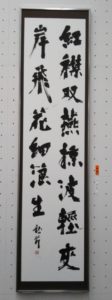 紅襟双燕掠波軽夾
岸飛花細浪生